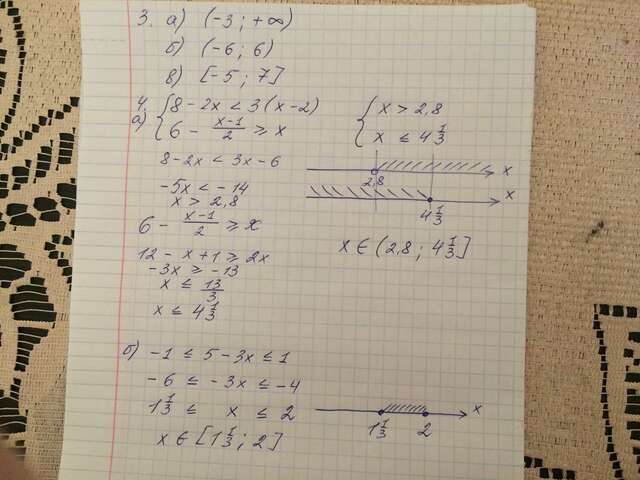 3. а) (-3; +∞)
б) (-6; 6)
в) [-5; 7]
4.
а) { 8 - 2x < 3(x-2)
6 - (x-1)/2 ≥ x
8 - 2x < 3x - 6
-5x < -14
x > 2,8
6 - (x-1)/2 ≥ x
12 - x + 1 ≥ 2x
-3x ≥ -13
x ≤ 13/3
x ≤ 4 1/3
{ x > 2,8
x ≤ 4 1/3
x
2,8
x
4 1/3
x ∈ (2,8; 4 1/3]
б) -1 ≤ 5 - 3x ≤ 1
-6 ≤ -3x ≤ -4
1 1/3 ≤ x ≤ 2
x ∈ [1 1/3; 2]
x
1 1/3 2